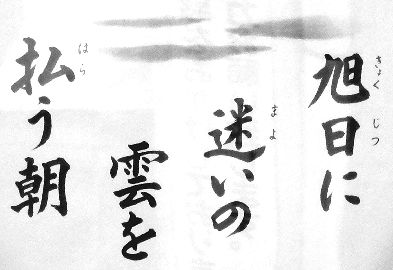 旭日に
迷いの
雲を
払う朝
きょく じつ
まよ
はら